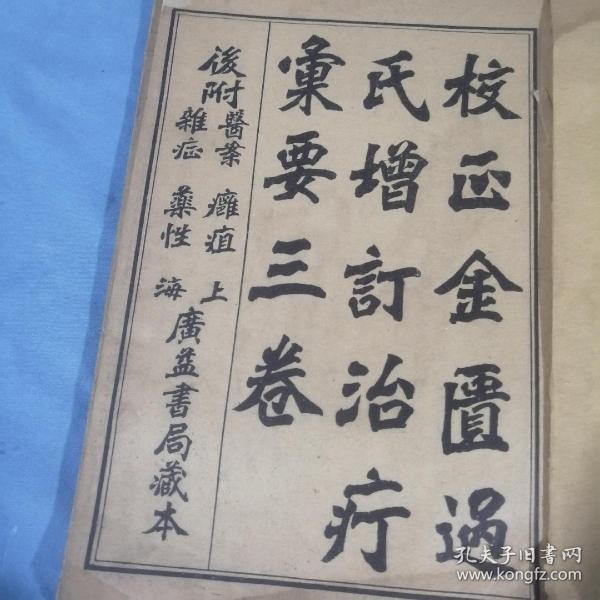 校正金匱過
氏增訂治疔
彙要三卷
後附醫案 癰疽 上
雜症 藥性 海
廣益書局藏本
孔夫子旧书网
www.kongfz.com